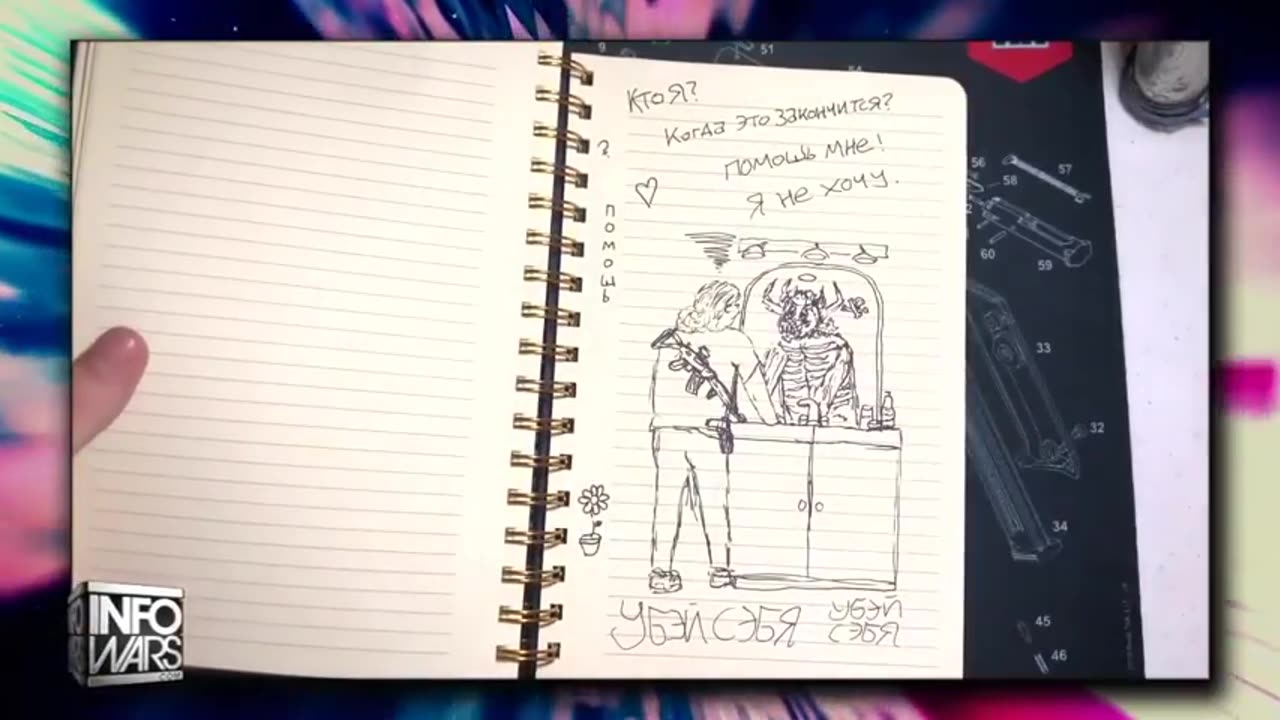 Кто я?
Когда это закончится?
помошь мне!
я не хочу.
?
помошь
УБЭЙ СЭБЯ
УБЭЙ
СЭБЯ
51
56
57
58
60
59
33
32
34
45
46
INFO
WARS
.COM